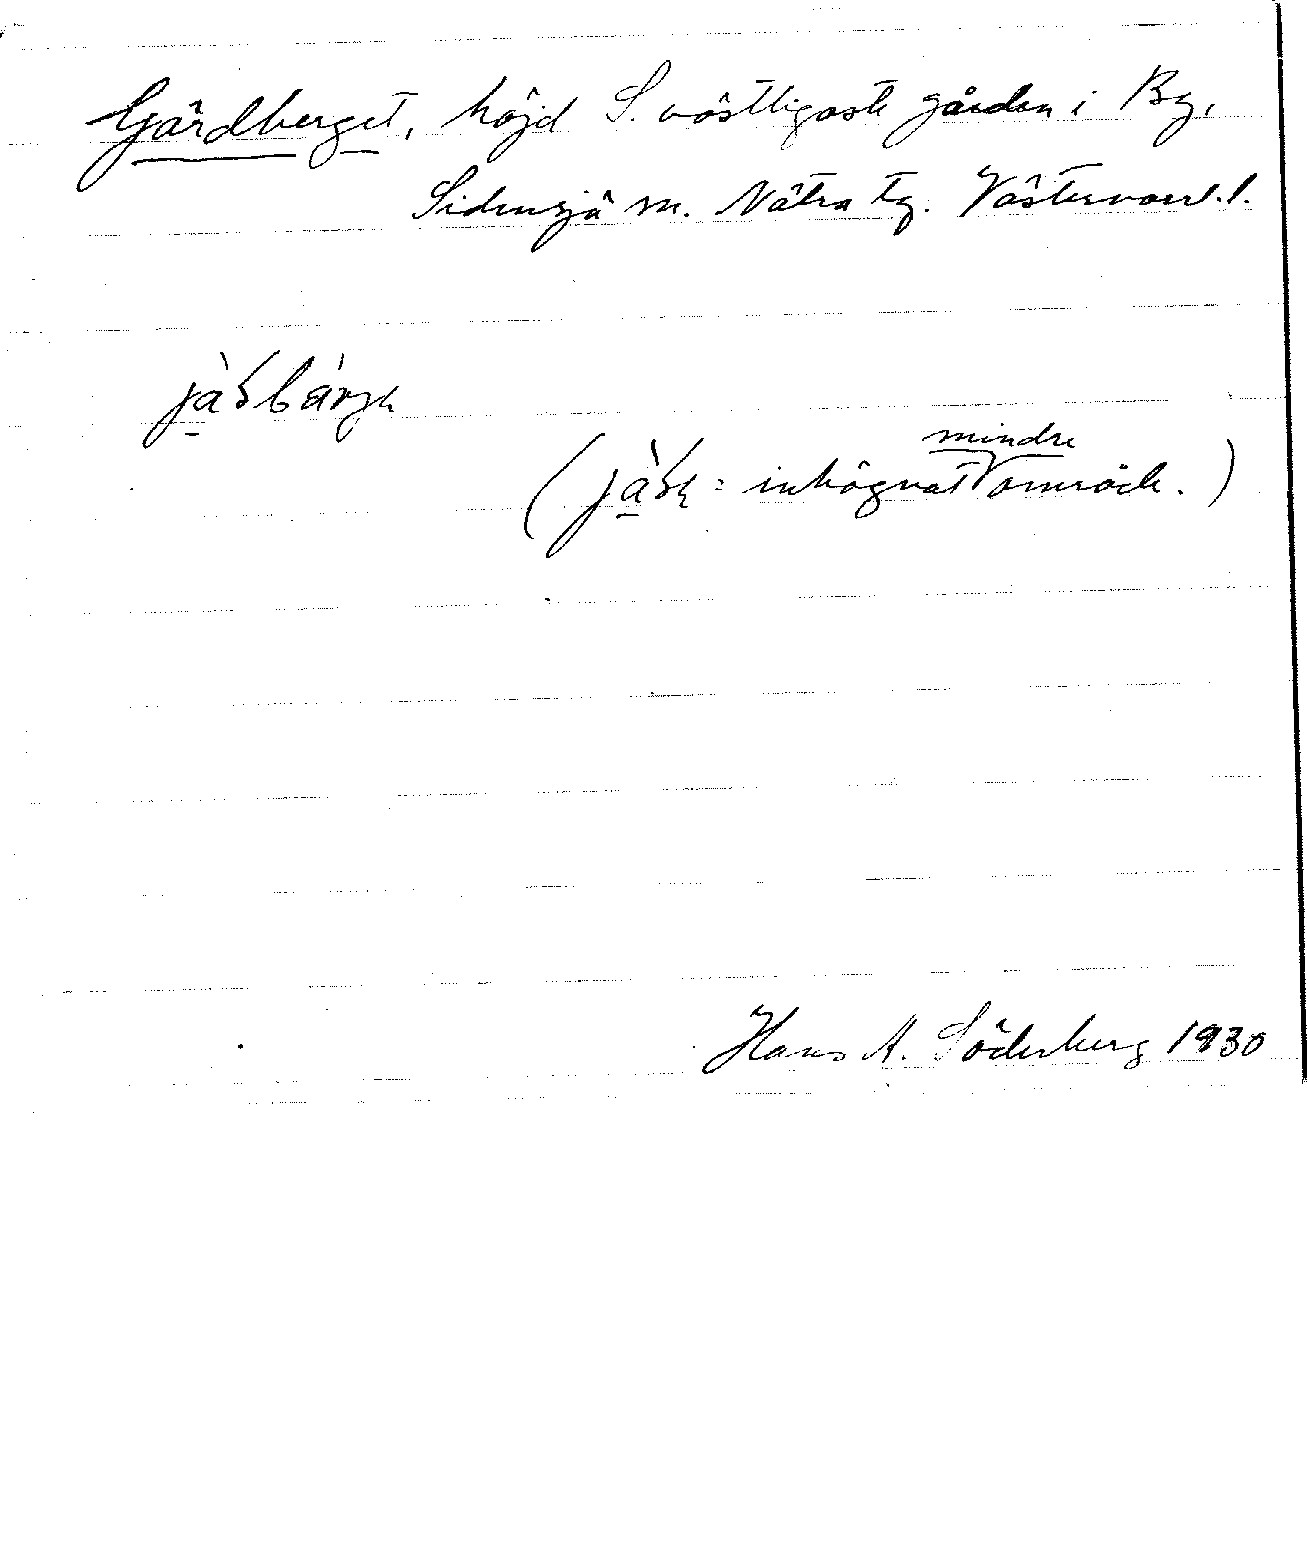 Gärdberget, höjd S. västligaste gården i By,
Sidensjö sn. Nätra tg. Västernorrl. l.
mindre
inhägnat område.)
Hans A. Söderberg 1930